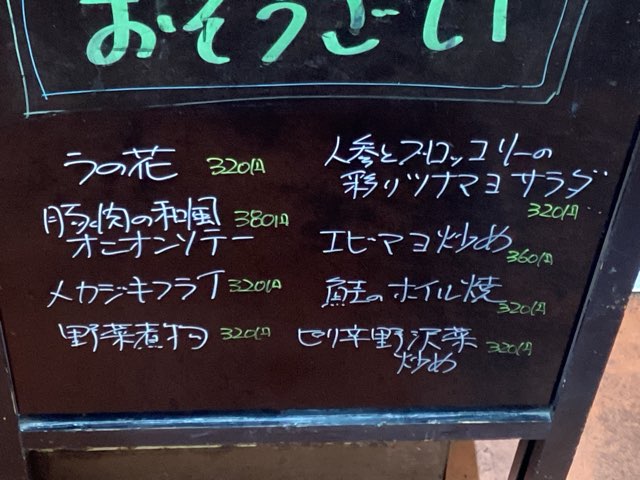 おそうざい
うの花 320円
豚肉の和風 380円
オニオンソテー
メカジキフライ 320円
野菜煮物 320円
人参とブロッコリーの
彩りツナマヨサラダ
320円
エビマヨ炒め
360円
鮭のホイル焼
320円
ピリ辛野沢菜 320円
炒め